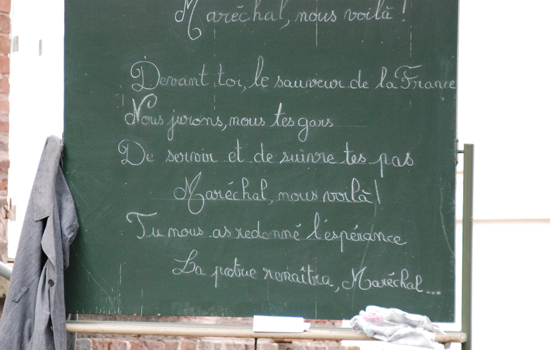 Maréchal, nous voilà !
Devant toi, le sauveur de la France
Nous jurons, nous tes gars
De servir et de suivre tes pas
Maréchal, nous voilà !
Tu nous as redonné l'espérance
La patrie renaîtra, Maréchal...